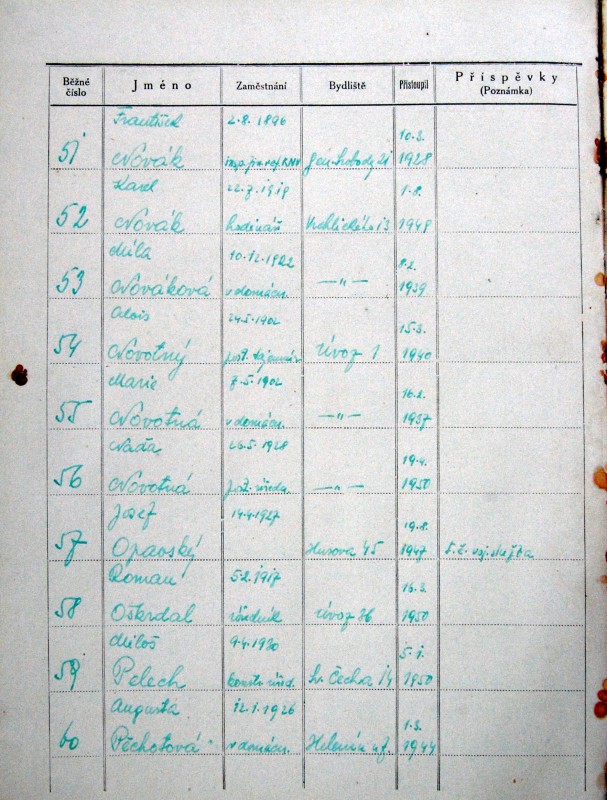 Běžné číslo Jméno Zaměstnání Bydliště Přistoupil Příspěvky (Poznámka)
František 2.8.1896 10.3.
51 Novák Gen. Svobody 21 1928
Karel 22.7.1919 1.8.
52 Novák hodinář Vrchlického 13 1948
Míla 10.12.1922 8.2.
53 Nováková v domácn. —"— 1939
Alois 24.5.1902 15.3.
54 Novotný pošt. tajemník Úvoz 1 1940
Marie 7.5.1902 16.2.
55 Novotná v domácn. —"— 1937
Naďa 26.5.1928 19.4.
56 Novotná —"— 1950
Josef 14.4.1927 19.8.
57 Opavský Husova 45 1947 t.č. voj. služba
Roman 5.2.1917 16.3.
58 Osterdal úředník Úvoz 36 1950
Miloš 9.4.1920 5.1.
59 Pelech konstr. úřed. Sv. Čecha 14 1950
Augusta 12.1.1926 1.3.
60 Pěchotová v domácn. 1944